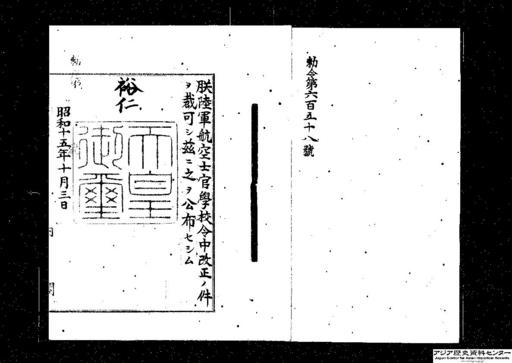 勅令第六百五十八號
朕陸軍航空士官學校令中改正ノ件
ヲ裁可シ茲ニ之ヲ公布セシム
裕仁
天皇
御璽
昭和十五年十月三日
アジア歴史資料センター
Japan Center for Asian Historical Records